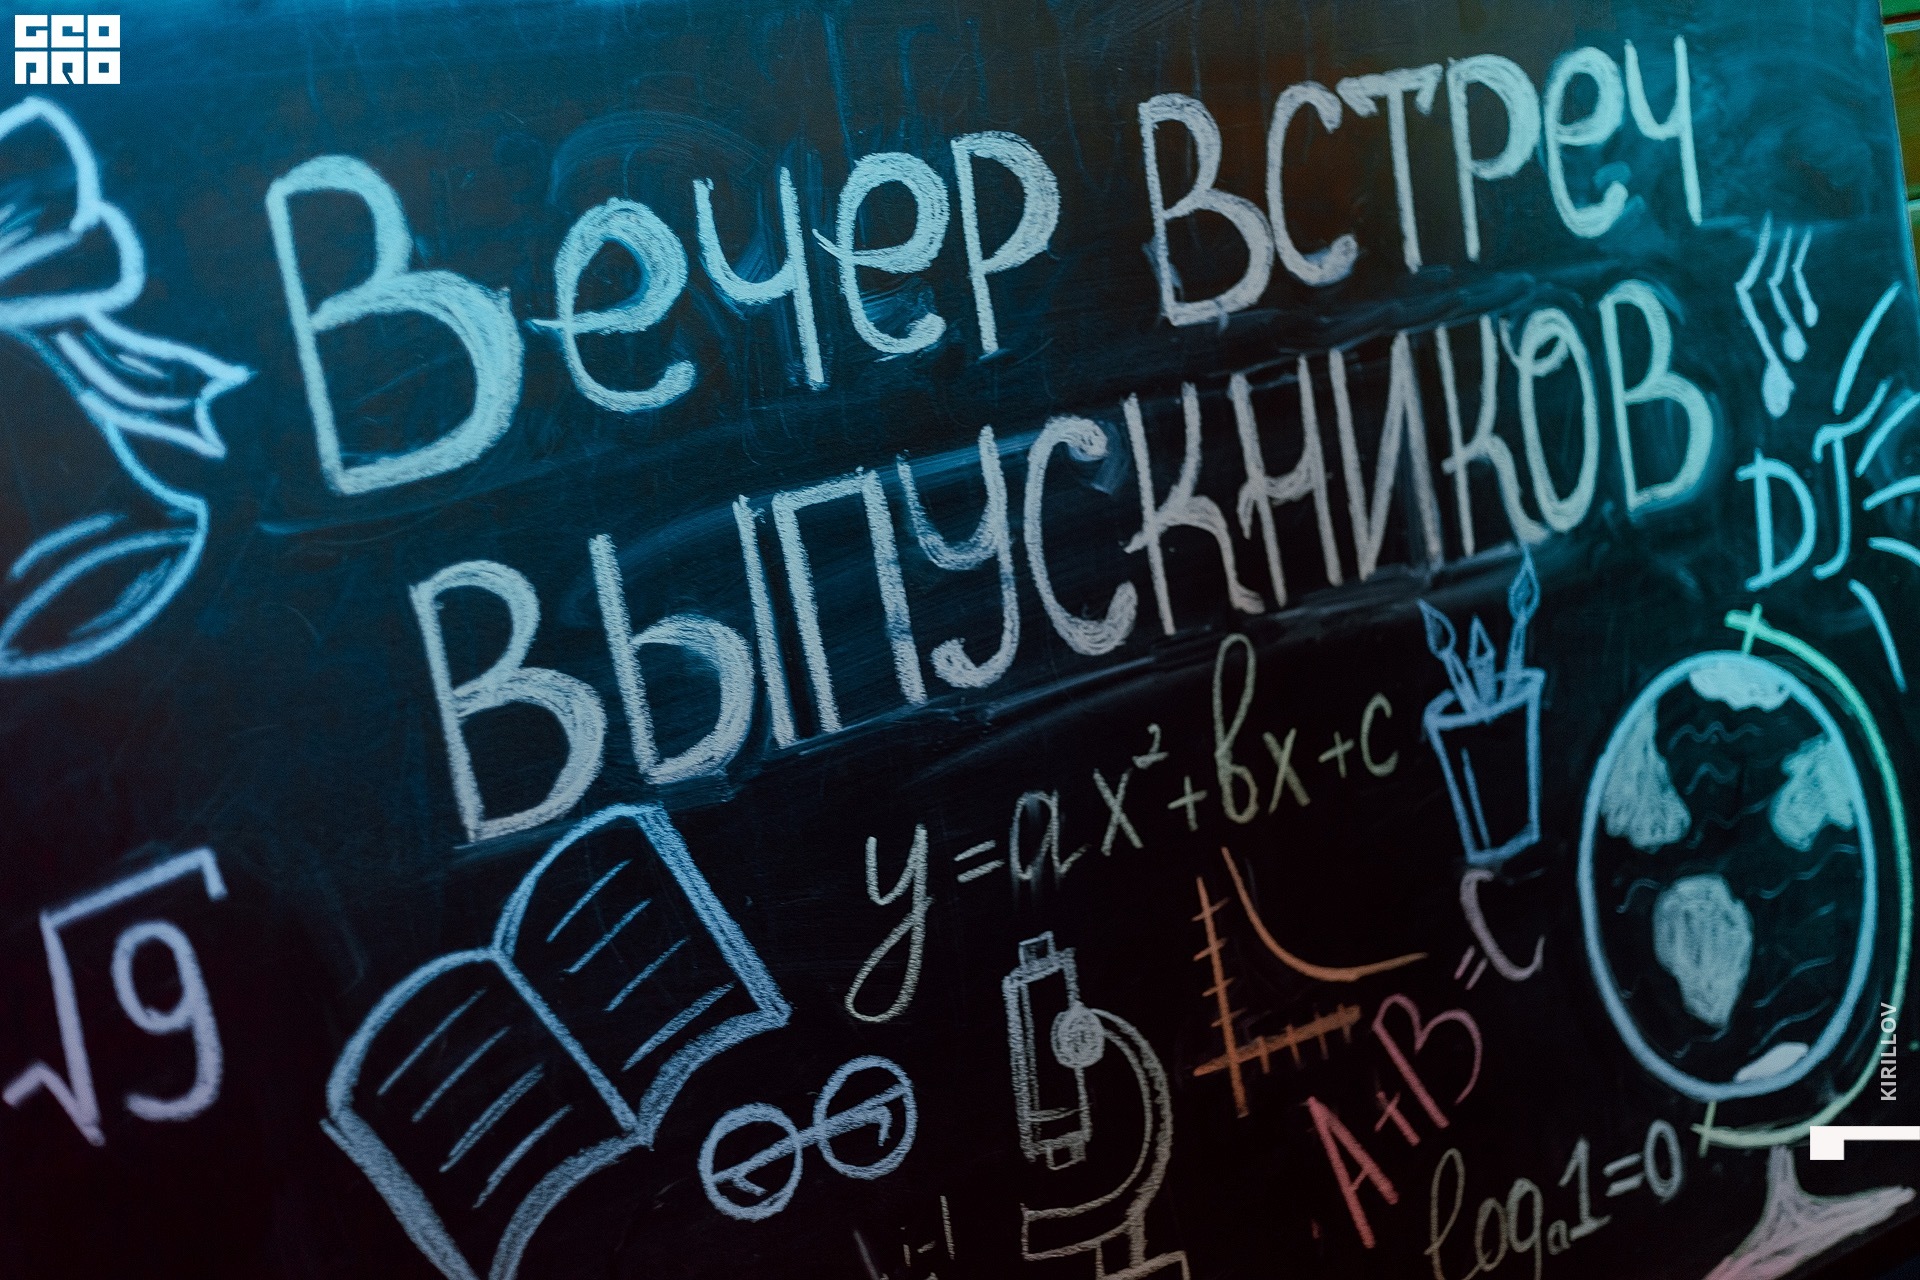 GEO
PRO
Вечер встреч
выпускников
DJ
y=ax²+bx+c
√9
A+B=C
logₐ1=0
KIRILLOV
1